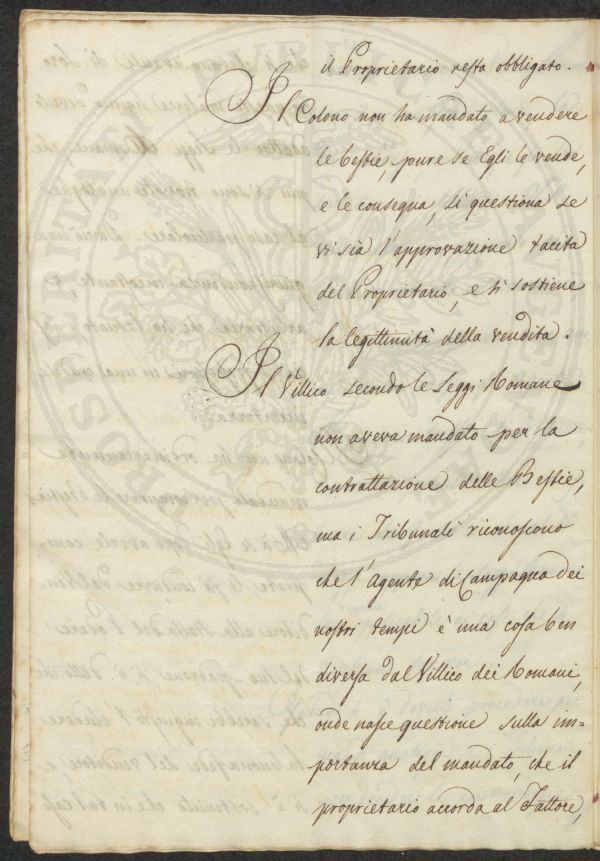 il Proprietario resta obbligato.
Il Colono non ha mandato a vendere
le bestie, pure se Egli le vende,
e le consegna, si questiona se
vi sia l'approvazione tacita
del Proprietario, e si sostiene
la legittimità della vendita.
Il Villico secondo le Leggi Romane
non aveva mandato per la
contrattazione delle Bestie,
ma i Tribunali riconoscono
che l'Agente di Campagna dei
nostri tempi è una cosa ben
diversa dal Villico dei Romani,
onde nasce questione sulla im=
portanza del mandato, che il
proprietario accorda al Fattore,